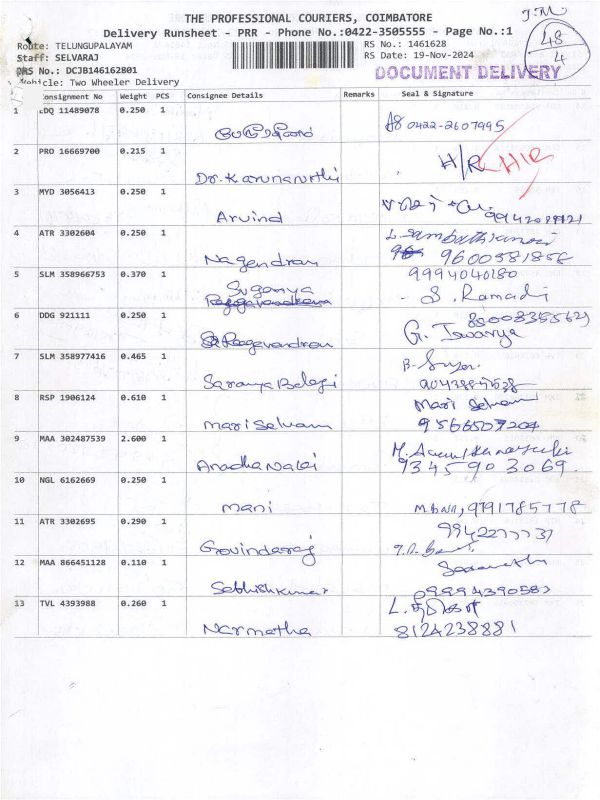 THE PROFESSIONAL COURIERS, COIMBATORE
Delivery Runsheet - PRR - Phone No.:0422-3505555 - Page No.:1
Route: TELUNGUPALAYAM RS No.: 1461628
Staff: SELVARAJ RS Date: 19-Nov-2024
DRS No.: DCJB146162801 DOCUMENT DELIVERY
Vehicle: Two Wheeler Delivery
48
4
Consignment No Weight PCS Consignee Details Remarks Seal & Signature
1 EDQ 11489078 0.250 1
0422-2607995
2 PRO 16669700 0.215 1
H/R H/R
Dr. Karunamurthi
3 MYD 3056413 0.250 1
Arvind
4 ATR 3302604 0.250 1
Nagendran 9600581856
5 SLM 358966753 0.370 1 9994040180
Suganya
S. Ramadi
6 DDG 921111 0.250 1
G. Iswarya
Raagavandran
7 SLM 358977416 0.465 1
Saranya Balaji
8 RSP 1906124 0.610 1 Mari Selvam
Mari Selvam 9566507204
9 MAA 302487539 2.600 1
9345903069.
10 NGL 6162669 0.250 1
Mani 9791785778
11 ATR 3302695 0.290 1
Govindaraj
12 MAA 866451128 0.110 1
Sabhishkumar 09994390583
13 TVL 4393988 0.260 1
Narmatha 8124238881